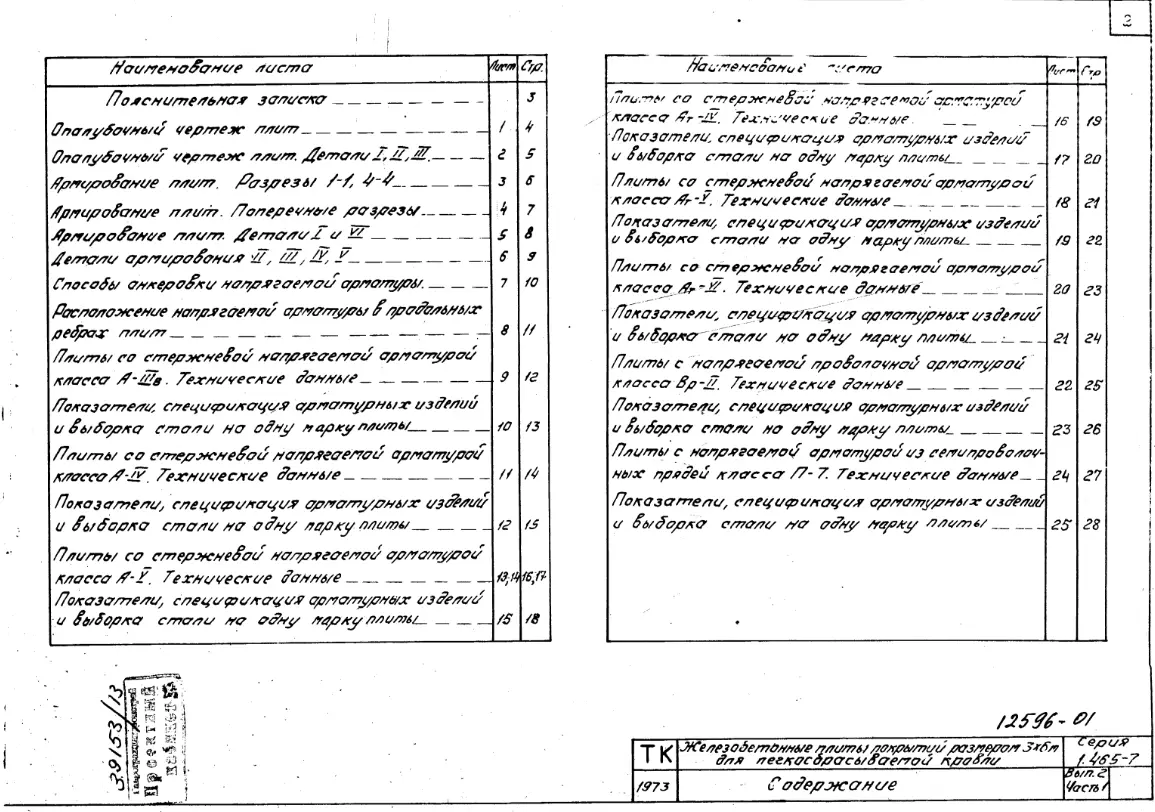 2
Наименование листа Лист Стр.
Пояснительная записка 3
Опалубочный чертеж плит 1 4
Опалубочный чертеж плит. Детали I, II, III. 2 5
Армирование плит. Разрезы 1-1, 4-4 3 6
Армирование плит. Поперечные разрезы 4 7
Армирование плит. Детали I и VI 5 8
Детали армирования II, III, IV, V 6 9
Способы анкеровки напрягаемой арматуры. 7 10
Расположение напрягаемой арматуры в продольных
ребрах плит 8 11
Плиты со стержневой напрягаемой арматурой
класса А-IIIв. Технические данные 9 12
Показатели, спецификация арматурных изделий
и выборка стали на одну марку плиты 10 13
Плиты со стержневой напрягаемой арматурой
класса А-IV. Технические данные 11 14
Показатели, спецификация арматурных изделий
и выборка стали на одну марку плиты 12 15
Плиты со стержневой напрягаемой арматурой
класса А-V. Технические данные 13,14 16,17
Показатели, спецификация арматурных изделий
и выборка стали на одну марку плиты 15 18
Наименование листа Лист Стр
Плиты со стержневой напрягаемой арматурой
класса Ат-IV. Технические данные. 16 19
Показатели, спецификация арматурных изделий
и выборка стали на одну марку плиты 17 20
Плиты со стержневой напрягаемой арматурой
класса Ат-V. Технические данные 18 21
Показатели, спецификация арматурных изделий
и выборка стали на одну марку плиты 19 22
Плиты со стержневой напрягаемой арматурой
класса Ат-VI. Технические данные 20 23
Показатели, спецификация арматурных изделий
и выборка стали на одну марку плиты 21 24
Плиты с напрягаемой проволочной арматурой
класса Вр-II. Технические данные 22 25
Показатели, спецификация арматурных изделий
и выборка стали на одну марку плиты 23 26
Плиты с напрягаемой арматурой из семипроволоч-
ных прядей класса П-7. Технические данные 24 27
Показатели, спецификация арматурных изделий
и выборка стали на одну марку плиты 25 28
39153/13
Проектный
кабинет
12596-01
ТК Железобетонные плиты покрытий размером 3х6м
для легкосбрасываемой кровли
Серия
1.465-7
1973 Содержание
Вып.2
Часть 1